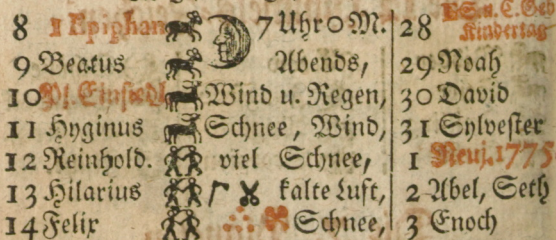 8 1 Epiphan 7 Uhr 0 M. 28
Kindertag
9 Beatus Abends, 29 Noah
10 Pf. Einsiedl Wind u. Regen, 30 David
11 Hyginus Schnee, Wind, 31 Sylvester
12 Reinhold. viel Schnee, 1 Neuj. 1775
13 Hilarius kalte Luft, 2 Abel, Seth
14 Felix Schnee, 3 Enoch